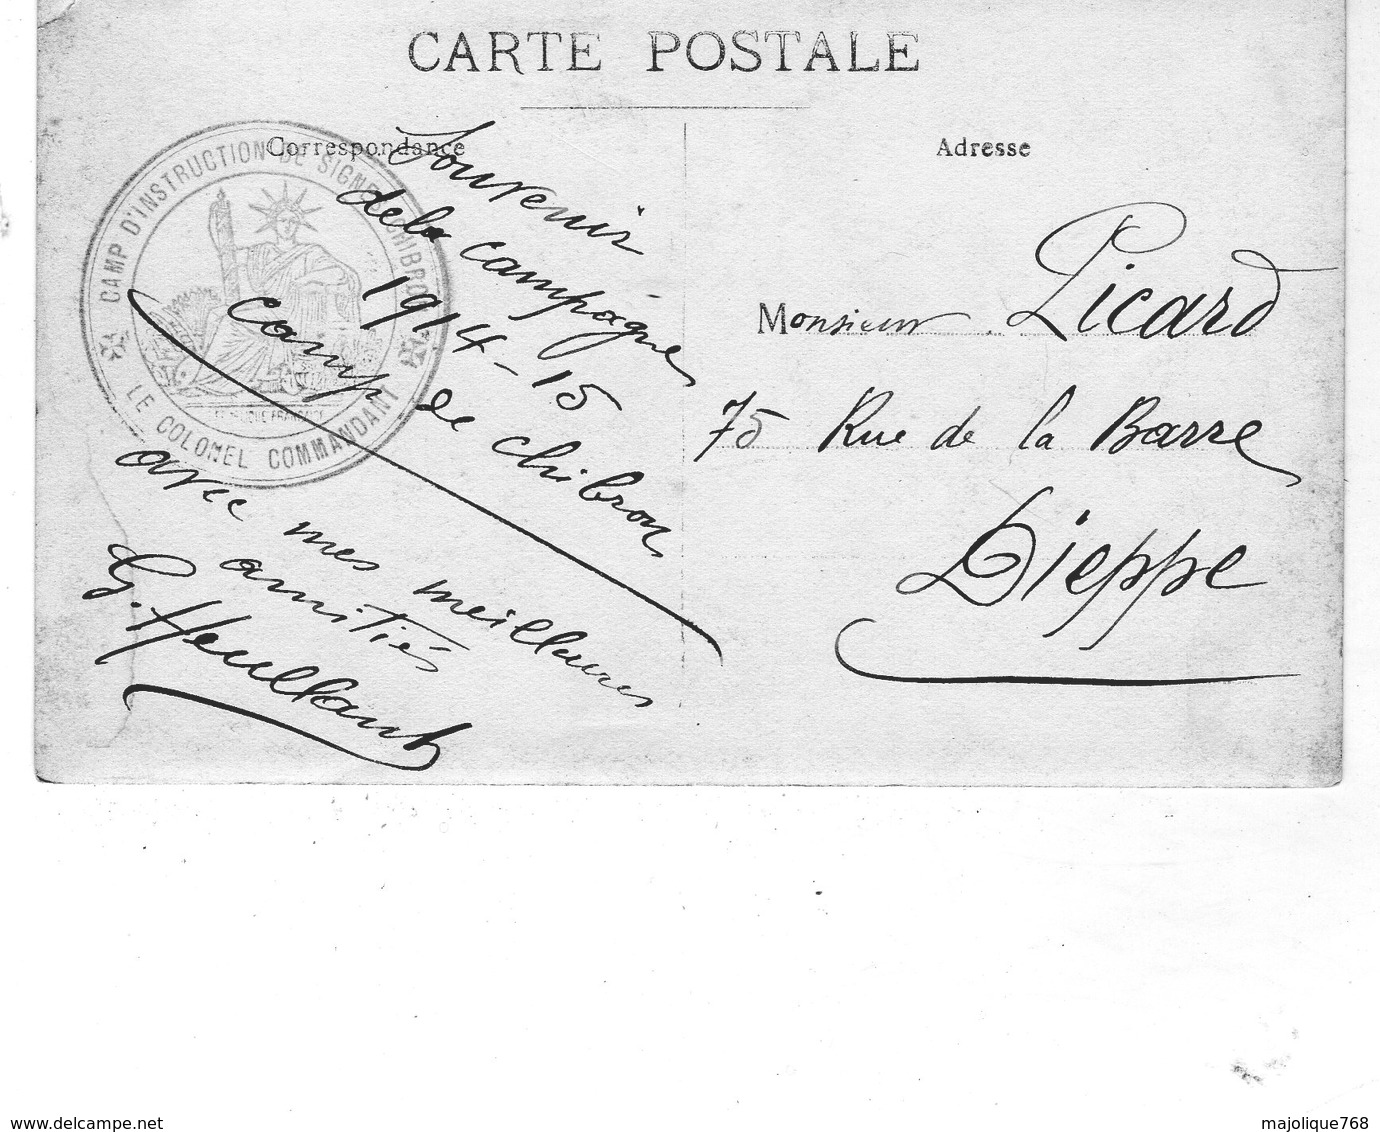 CARTE POSTALE
Correspondance
Adresse
CAMP D'INSTRUCTION DE SIGNES CHIBRON
LE COLONEL COMMANDANT
Souvenir
de la campagne
1914-15
Camp de Chibron
avec mes meilleures
amitiés
G. Heullant
Monsieur Picard
75 Rue de la Barre
Dieppe
www.delcampe.net
majolique768